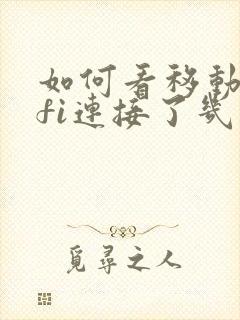 如何看移動
fi連接了幾
覓尋之人